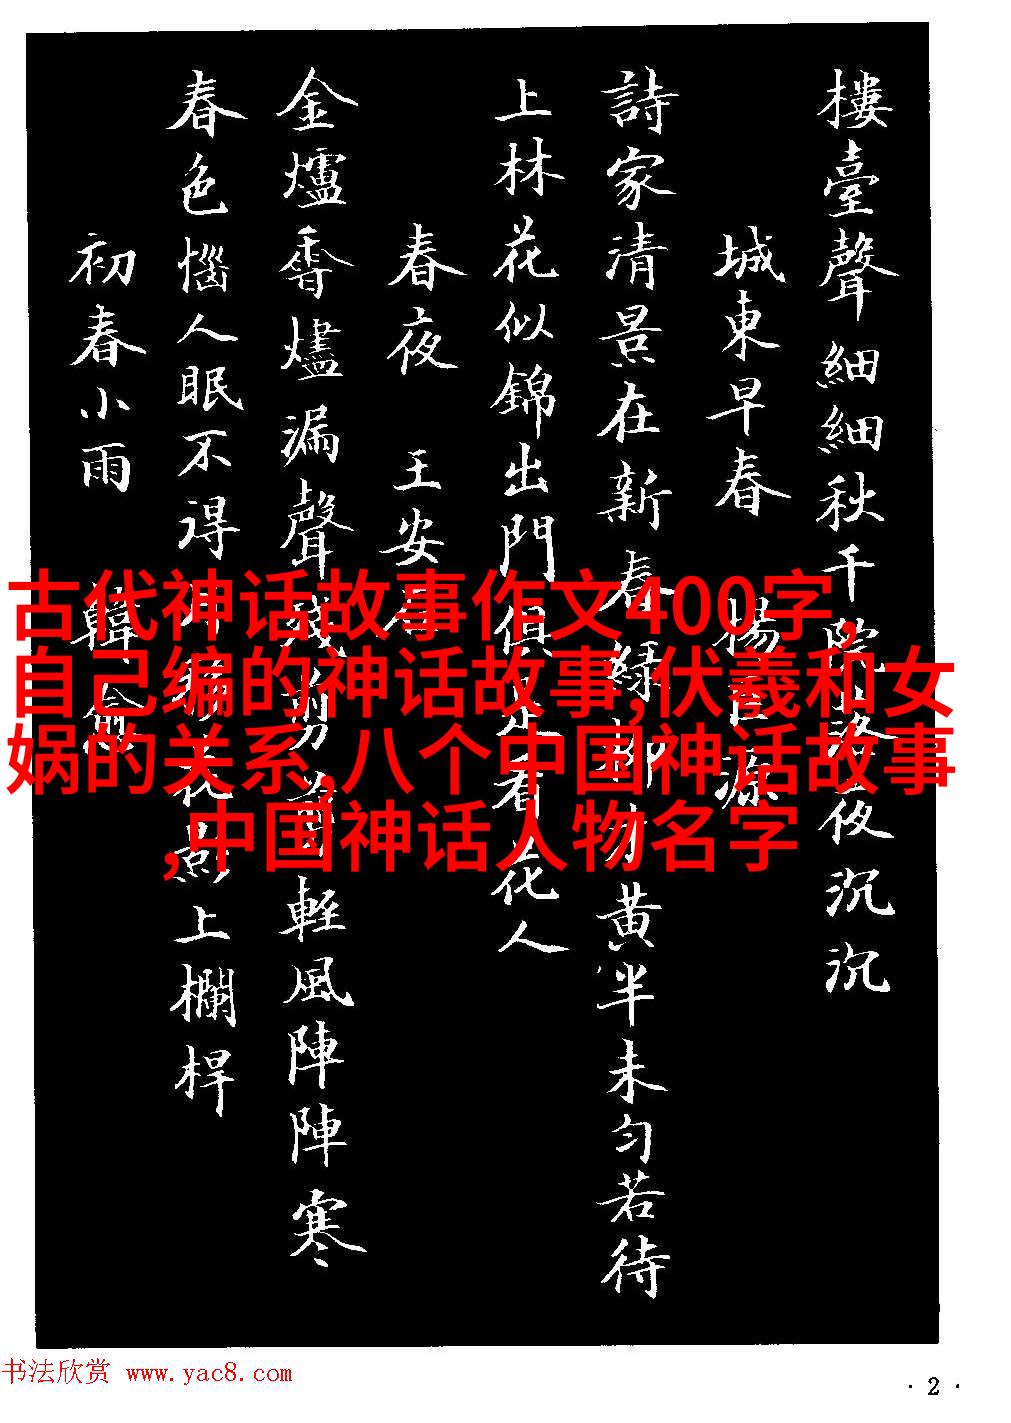 樓臺聲細細秋千院落夜沉沉
城東早春 楊巨源
詩家清景在新春綠柳才黃半未勻若待
上林花似錦出門俱是看花人
春夜 王安
金爐香燼漏聲殘剪剪輕風陣陣寒
春色惱人眠不得移花影上欄桿
初春小雨 韓愈
古代神话故事作文400字,
自己编的神话故事,伏羲和女
娲的关系,八个中国神话故事
,中国神话人物名字
书法欣赏 www.yac8.com
·2·